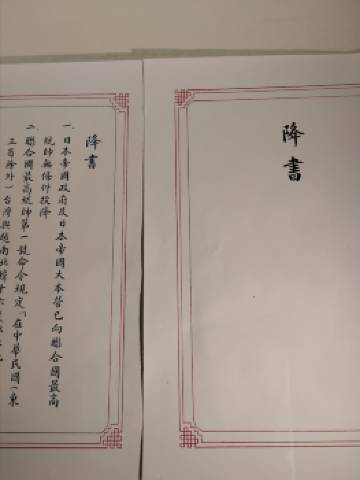 降書
降書
一、日本帝國政府及日本帝國大本營已向聯合國最高
統帥無條件投降
二、聯合國最高統帥第一號命令規定「在中華民國(東
三省除外)台灣與越南北緯十六度